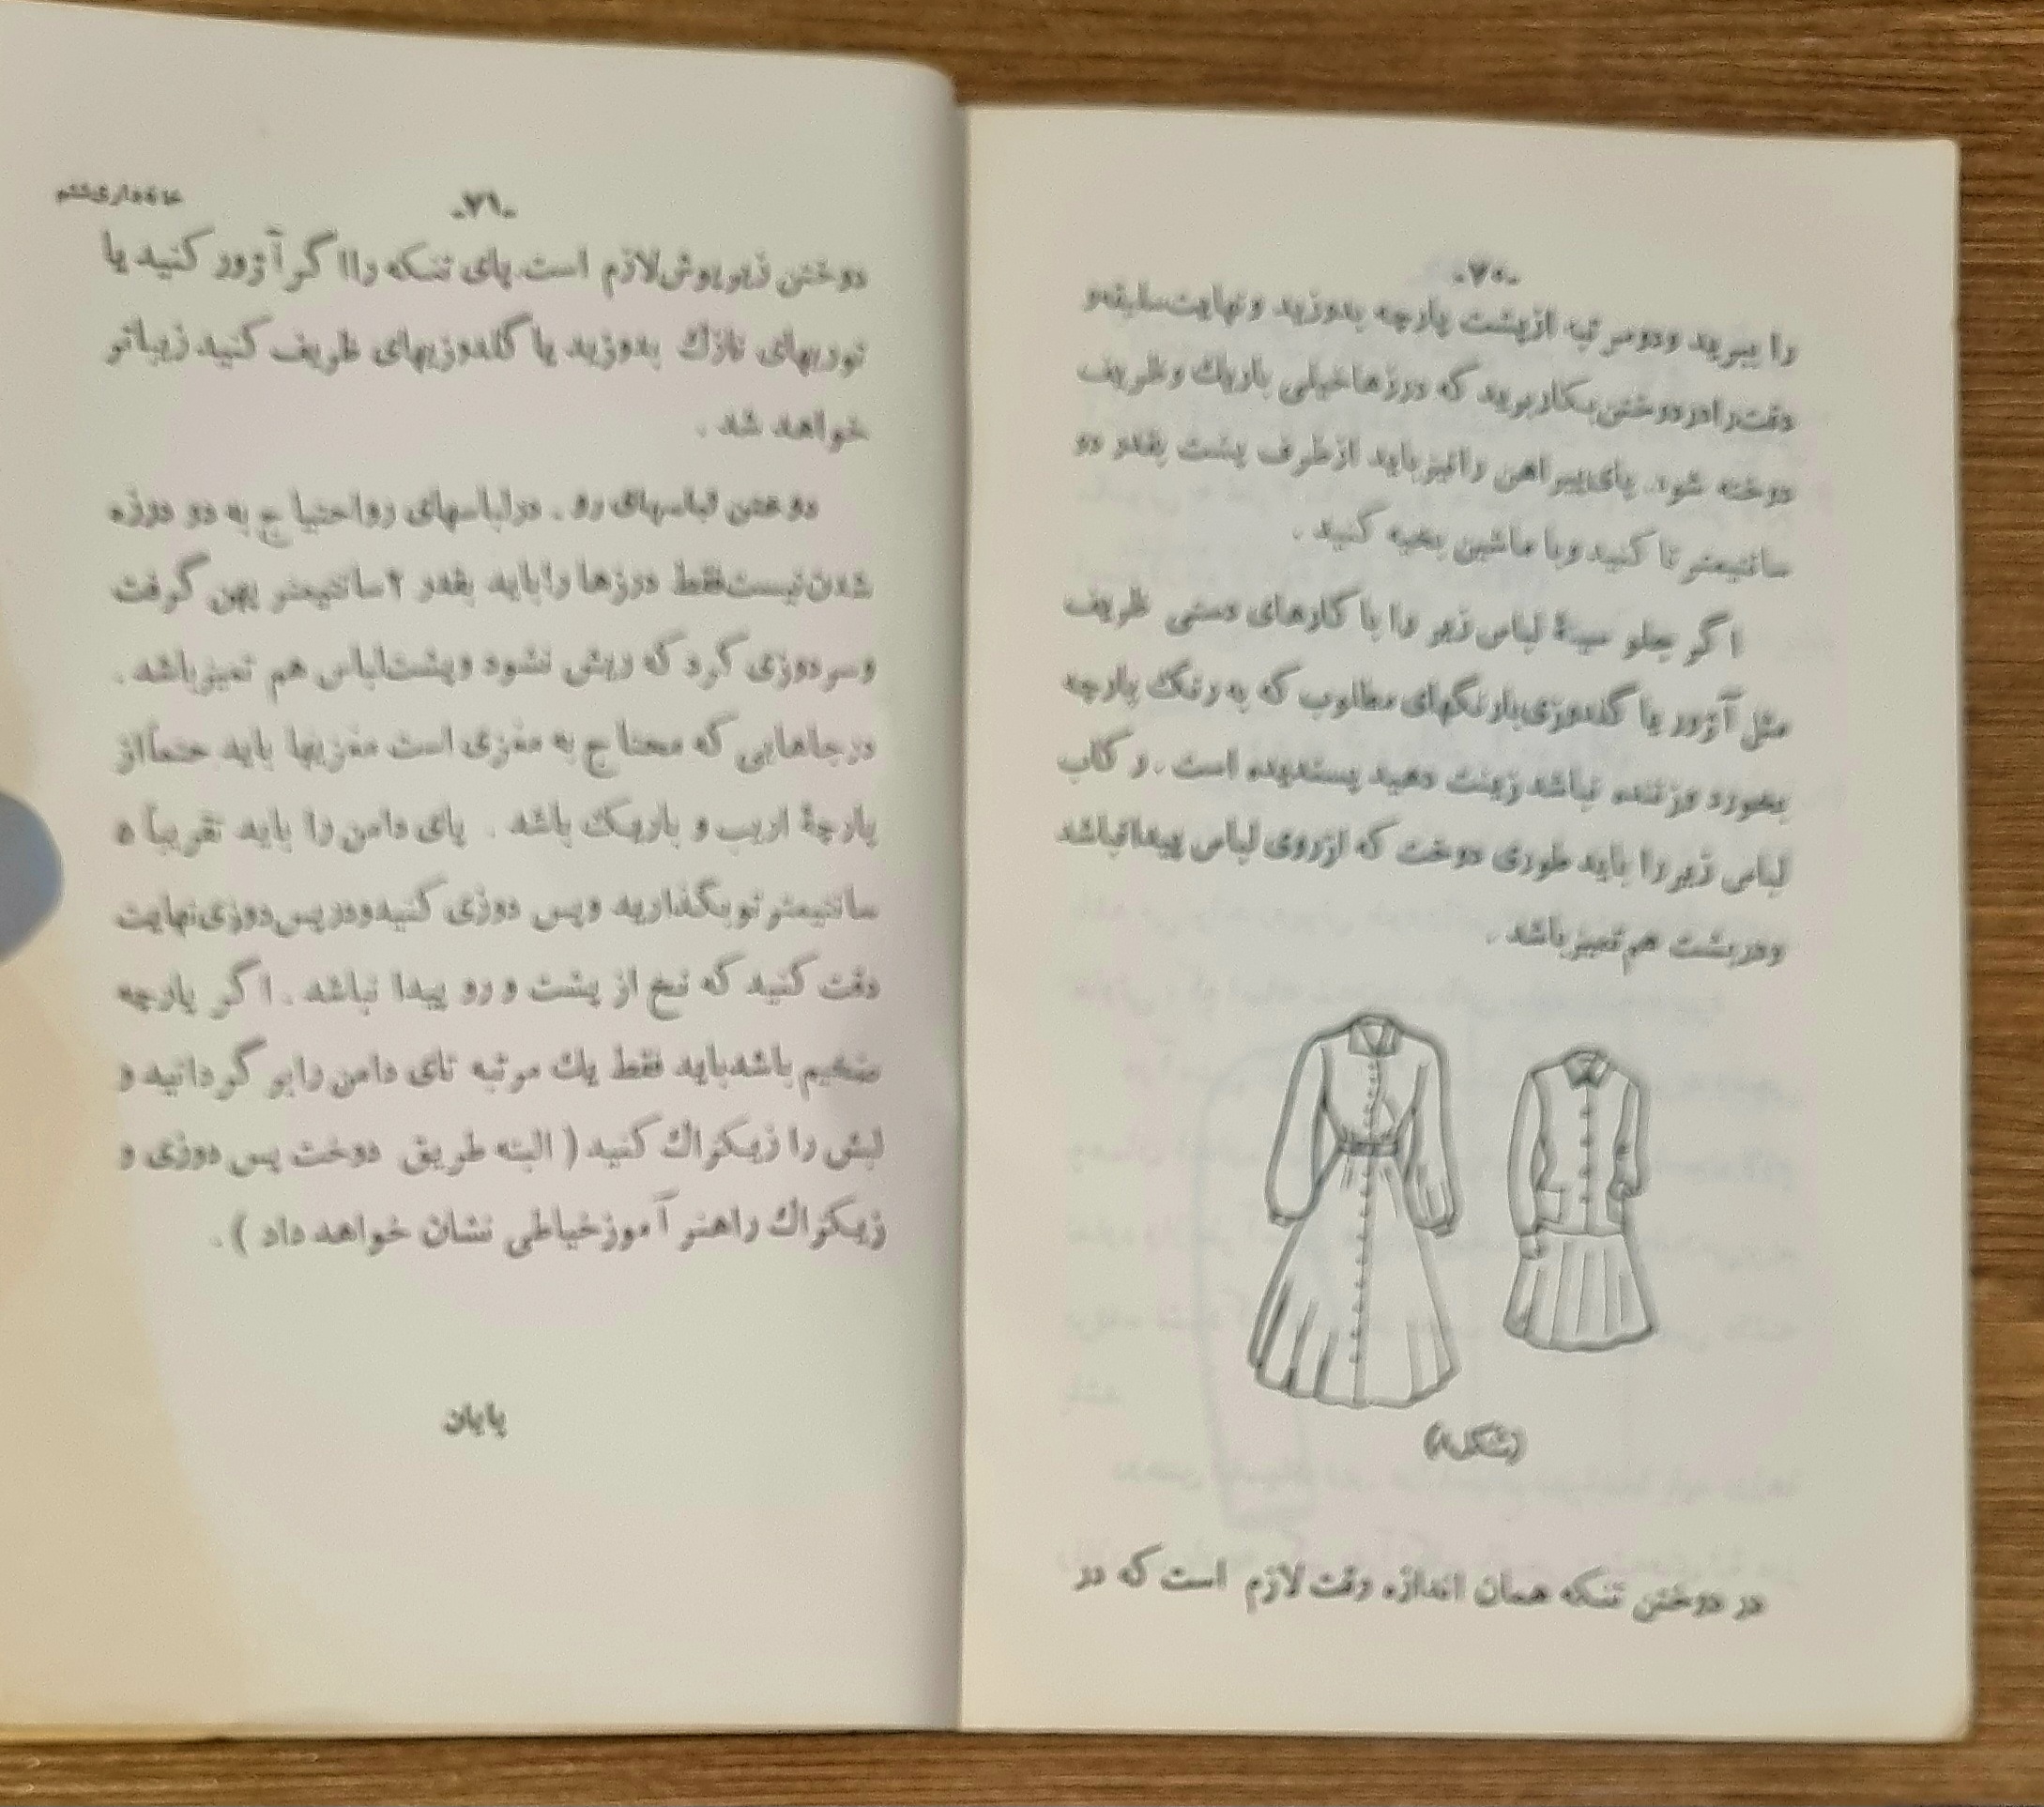 -۷۰-
را ببرید ودومرتبه ازپشت پارچه بدوزید ونهایت سلیقه و
دقت‌را در دوختن بکار برید که درزها خیلی باریك وظریف
دوخته شود. پای پیراهن را نیز باید از طرف پشت بقدر دو
سانتیمتر تا کنید وبا ماشین بخیه کنید .
اگر جلو سینهٔ لباس زیر را با کارهای دستی ظریف
مثل آژور یا گلدوزی بارنگهای مطلوب که به رنگ پارچه
بخورد وزننده نباشد زینت دهید پسندیده است . رکاب
لباس زیر را باید طوری دوخت که از روی لباس پیدا نباشد
ودر پشت هم تمیز باشد .
(شکل۸)
در دوختن تنکه همان اندازه دقت لازم است که در
-۷۱-
خانه‌داری ششم
دوختن زیرپوش لازم است. پای تنکه را اگر آژور کنید یا
توریهای نازك بدوزید یا گلدوزیهای ظریف کنید زیباتر
خواهد شد .
دوختن لباسهای رو . در لباسهای رو احتیاج به دو درزه
شدن نیست فقط درزها را باید بقدر ۲ سانتیمتر پهن گرفت
وسردوزی کرد که ریش نشود وپشت لباس هم تمیز باشد .
در جاهایی که محتاج به مغزی است مغزیها باید حتماً از
پارچهٔ اریب و باریك باشد . پای دامن را باید تقریباً ۵
سانتیمتر تو بگذارید وپس دوزی کنید ودر پس دوزی نهایت
دقت کنید که نخ از پشت و رو پیدا نباشد . اگر پارچه
ضخیم باشد باید فقط یك مرتبه تای دامن را بر گردانید و
لبش را زیکزاك کنید ( البته طریق دوخت پس دوزی و
زیکزاك را هنر آموز خیاطی نشان خواهد داد ) .
پایان